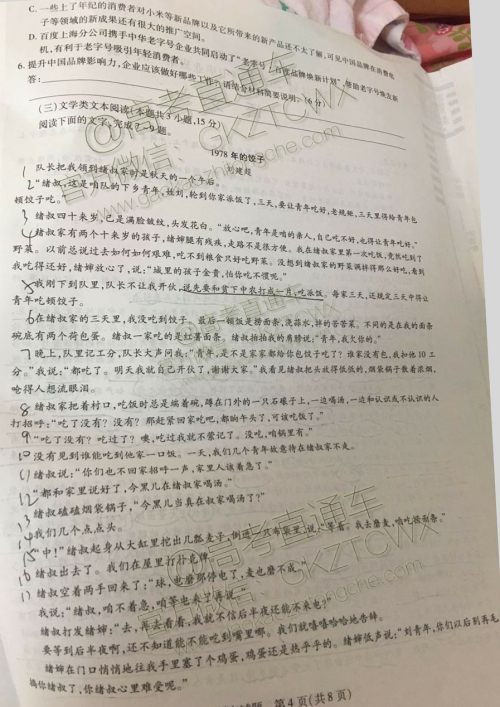 C. 一些上了年纪的消费者对小米等新品牌以及它所带来的新产品还不太了解,可见中国品牌在消费电
子等领域的新成果还有很大的推广空间。
D. 百度上海分公司携手中华老字号企业共同启动了“老字号,百度品牌焕新计划”,帮助老字号焕发新
机,有利于老字号吸引年轻消费者。
6. 提升中国品牌影响力,企业应该做好哪些工作?请结合材料简要说明。(6分)
答:
(三)文学类文本阅读(本题共3小题,15分)
阅读下面的文字,完成7~9题。
1978年的饺子
刘建超
1 队长把我领到绪叔家时是秋天的一个午后。
2 “绪叔,这是咱队的下乡青年,娃刘,轮到你家派饭了,三天,要让青年吃好,老规矩,三天里得给青年包
顿饺子吃。”
3 绪叔四十来岁,已是满脸皱纹,头发花白。“放心吧,青年是咱的亲人,自己吃不好,也得让青年吃好。”
4 绪叔家有两个十来岁的孩子,绪婶腿有残疾,走路不是很方便。我在绪叔家里第一次吃饭,竟然吃到了
野菜。以前总说过去如何如何艰难,吃不到粮食只好吃野菜。没想到绪叔家的野菜调拌得那么好吃,看到
我吃得还好,绪婶放心了,说:“城里的孩子金贵,怕你吃不惯呢。”
5 我刚下到队里,队长不让我开伙,说先要和贫下中农打成一片,吃派饭。每家三天,还规定三天中得让
青年吃顿饺子。
6 在绪叔家的三天里,我没吃到饺子。最后一顿饭是捞面条,浇蒜水,拌的苦苦菜。不同的是在我的面条
碗底有两个荷包蛋。绪叔一家吃的是红薯面条。绪叔拍拍我的肩膀说:“青年,我欠你的。”
7 晚上,队里记工分,队长大声问我:“青年,是不是家家都给你包饺子吃了?谁家没有包,我扣他10工
分。”我说:“都吃了。明天我就自己开伙了,谢谢大家。”我看见绪叔把头放得低低的,烟袋锅子散着浓烟,
呛得人想流眼泪。
8 绪叔家把着村口,吃饭时总是端着碗,蹲在门外的一只石碾子上,一边喝汤,一边和认识或不认识的人
打招呼:“吃了没有?没有?那赶紧回家吃吧,都晌午头了,可该吃饭了。”
9 “吃了没有?吃过了?噢,吃过我就不蒙记了。没吃,咱锅里有。”
10 没有见到谁能吃到他家一口饭。一天,我们几个青年故意待在绪叔家不走。
11 绪叔说:“你们也不回家招呼一声,家里人该着急了。”
12 “都和家里说好了,今黑儿在绪叔家喝汤。”
13 绪叔磕磕烟袋锅子,“今黑儿当真在叔家喝汤了?”
14 我们几个点点头。
15 “中!”绪叔起身从大缸里挖出几瓢麦子,倒进一只布袋里,说:“等着。我去磨麦,咱吃捞面条。”
16 绪叔出去了。我们在屋里打扑克牌。
绪叔空着两手回来了:“球,电磨那停电了,麦也磨不成。”
我说:“绪叔,咱不着急,咱等电来了再说。”
绪叔打发绪婶:“去,再去看看,我就不信后半夜还能不来电?”
要等到后半夜啊,还不知道能不能吃到嘴里哪。我们就嘻嘻哈哈地告辞。
绪婶在门口悄悄地往我手里塞了个鸡蛋,鸡蛋还是热乎乎的。绪婶低声说:“刘青年,你们以后别再
捣你绪叔了,你绪叔心里难受呢。”
第4页(共8页)